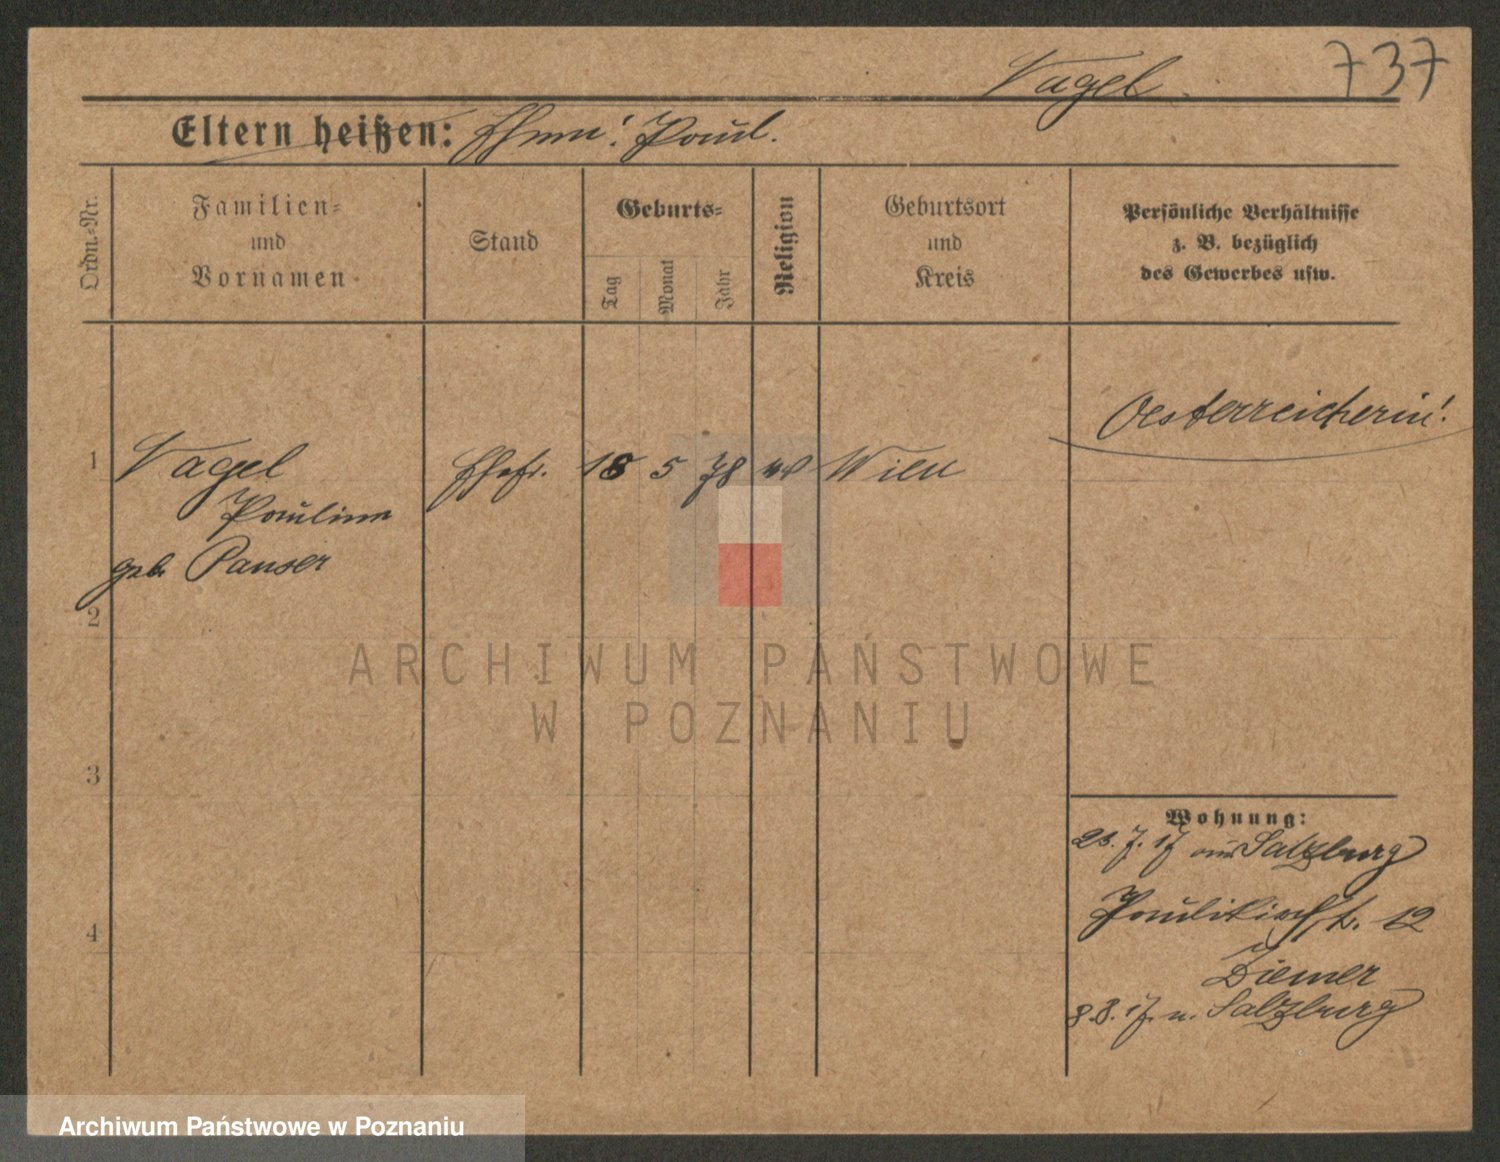 Vagel.
737
Eltern heißen: Ehem: Paul.
Ordn.-Nr.
Familien-
und
Vornamen
Stand
Geburts-
Tag
Monat
Jahr
Religion
Geburtsort
und
Kreis
Persönliche Verhältnisse
z. B. bezüglich
des Gewerbes usw.
Oesterreicherin!
1 Vagel Ehefr. 18 5 78 Wien
Pauline
geb. Panser
2
3
4
Wohnung:
23. 7. 17 aus Salzburg
Paulikirchst. 12
Ziemer
8.8. 17. n. Salzburg
ARCHIWUM PAŃSTWOWE
W POZNANIU
Archiwum Państwowe w Poznaniu